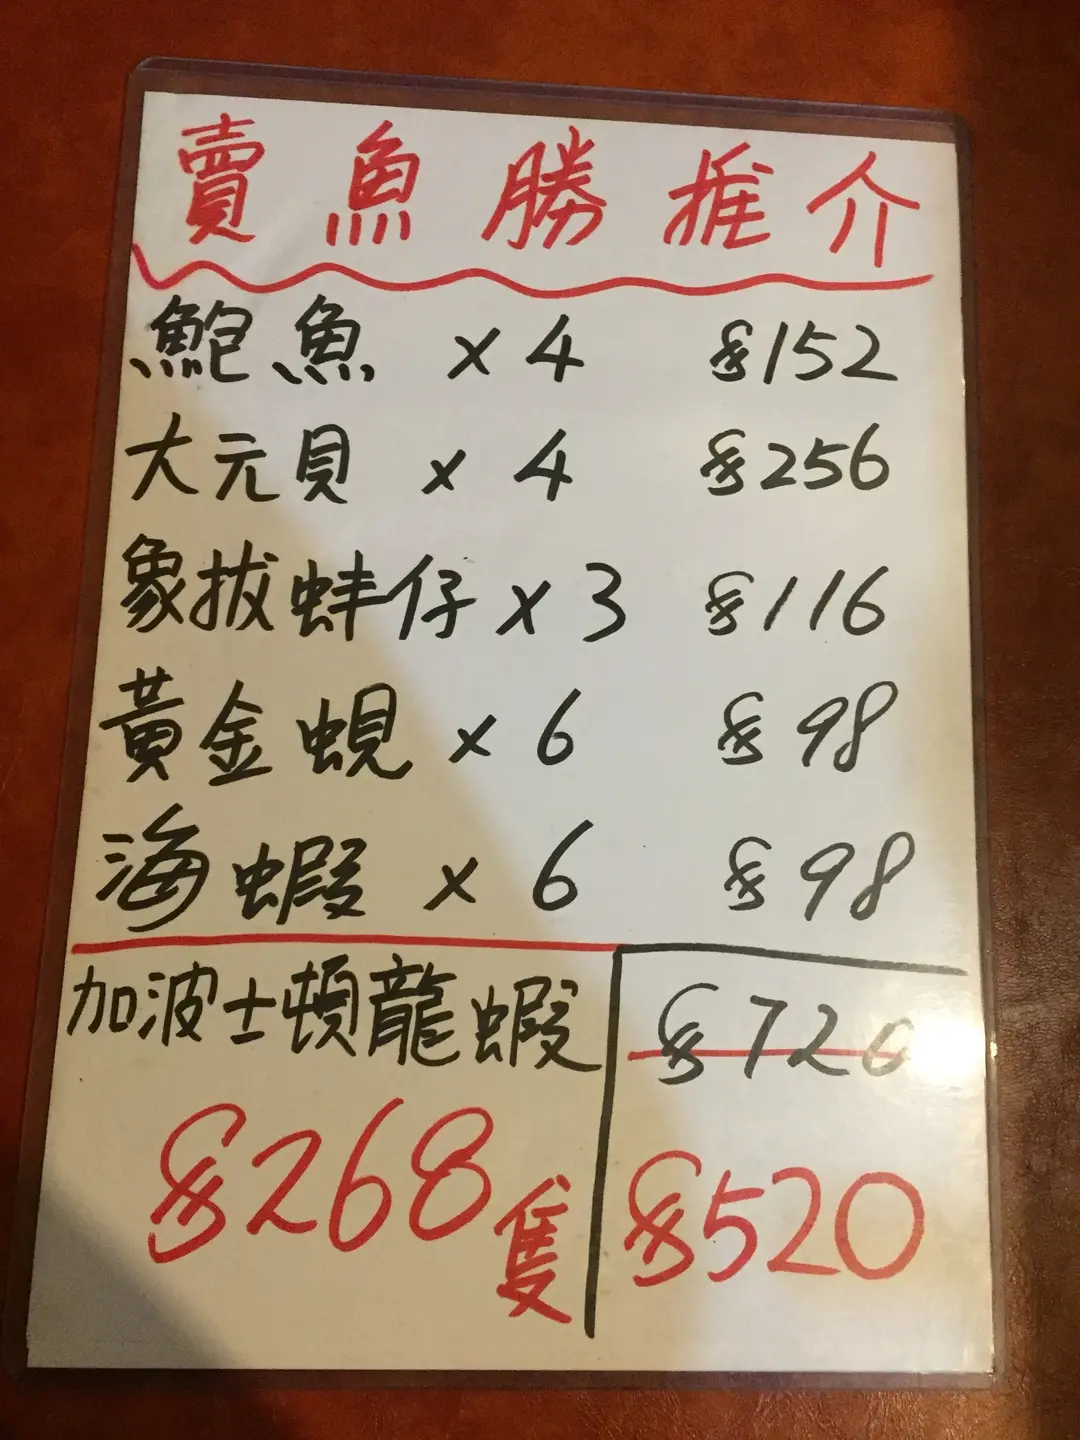 賣魚勝推介
鮑魚 x 4 $152
大元貝 x 4 $256
象拔蚌仔 x 3 $116
黃金蜆 x 6 $98
海蝦 x 6 $98
加波士頓龍蝦 $720
$268隻 $520